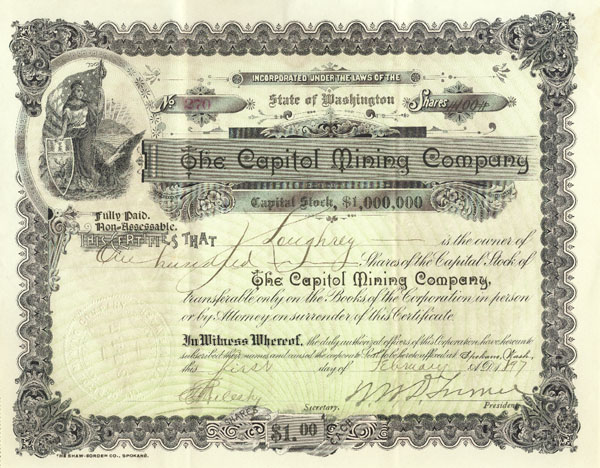 INCORPORATED UNDER THE LAWS OF THE
No 270 State of Washington Shares 100
The Capitol Mining Company
Capital Stock, $1,000,000
Fully Paid.
Non-Assessable.
THIS CERTIFIES THAT Loughrey is the owner of
One hundred Shares of the Capital Stock of
The Capitol Mining Company,
transferable only on the Books of the Corporation in person
or by Attorney on surrender of this Certificate.
In Witness Whereof, the duly authorized officers of this Corporation have hereunto
subscribed their names and caused the corporate Seal to be hereto affixed at Spokane, Wash.,
this first day of February 1897
Secretary. President
SHARES $1.00 EACH
THE SHAW-BORDEN CO., SPOKANE.